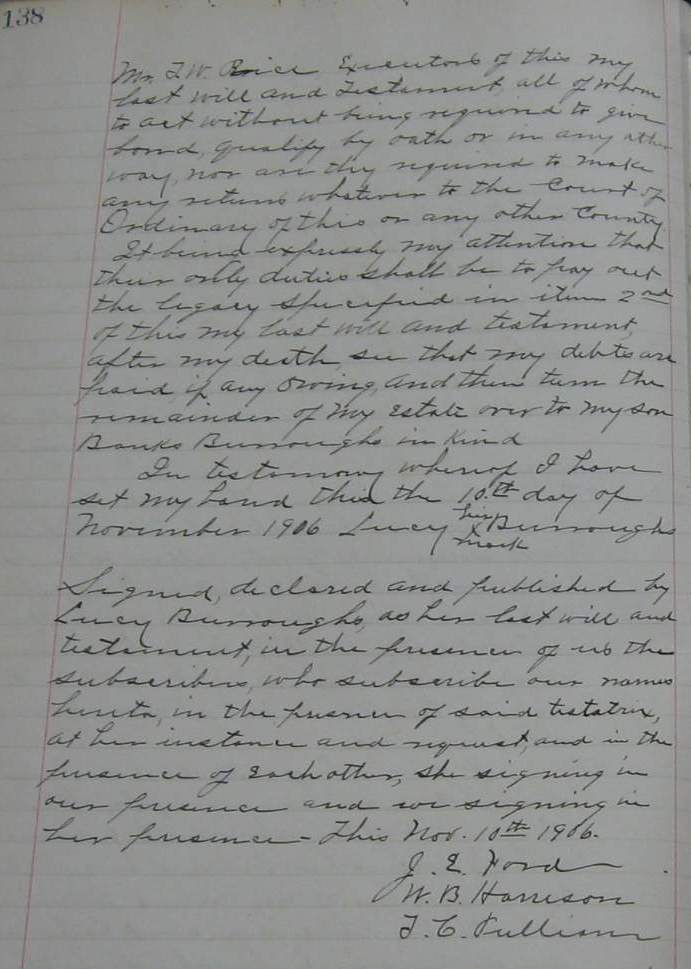 138
Mr. T. W. Rice Executors of this my
last will and Testament, all of whom
to act without being required to give
bond, qualify by oath or in any other
way, nor are they required to make
any returns whatever to the Court of
Ordinary of this or any other County
It being expressly my attention that
their only duties shall be to pay out
the legacy specified in item 2nd
of this my last will and testament,
after my death see that my debts are
paid if any owing, and then turn the
remainder of my Estate over to my son
Banks Burroughs in Kind
In testimony whereof I have
set my hand this the 10th day of
November 1906 Lucy her x mark Burroughs
Signed, declared and published by
Lucy Burroughs, as her last will and
testament, in the presence of us the
subscribers, who subscribe our names
hereto, in the presence of said testatrix,
at her instance and request, and in the
presence of Each other, she signing in
our presence and we signing in
her presence - This Nov. 10th 1906.
J. E. Ford
W. B. Harrison
T. C.